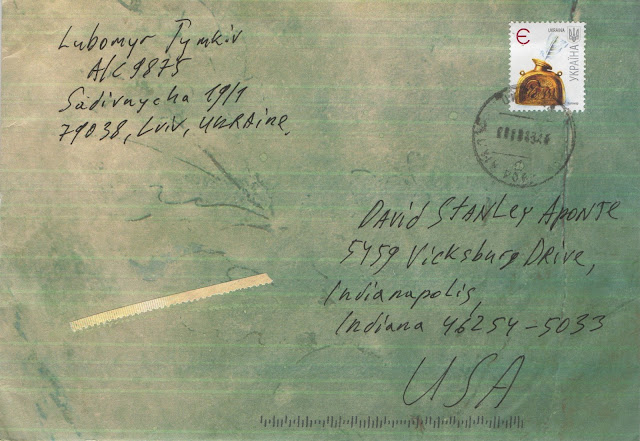 Lubomyr Tymkiv
A/C 9875
Sadivnycha 19/1
79038, Lviv, UKRAine,
Є
UKRAINA
УКРАЇНА
DAVID STANLEY APONTE
5459 Vicksburg DRIVE,
Indianapolis,
Indiana 46254-5033
USA